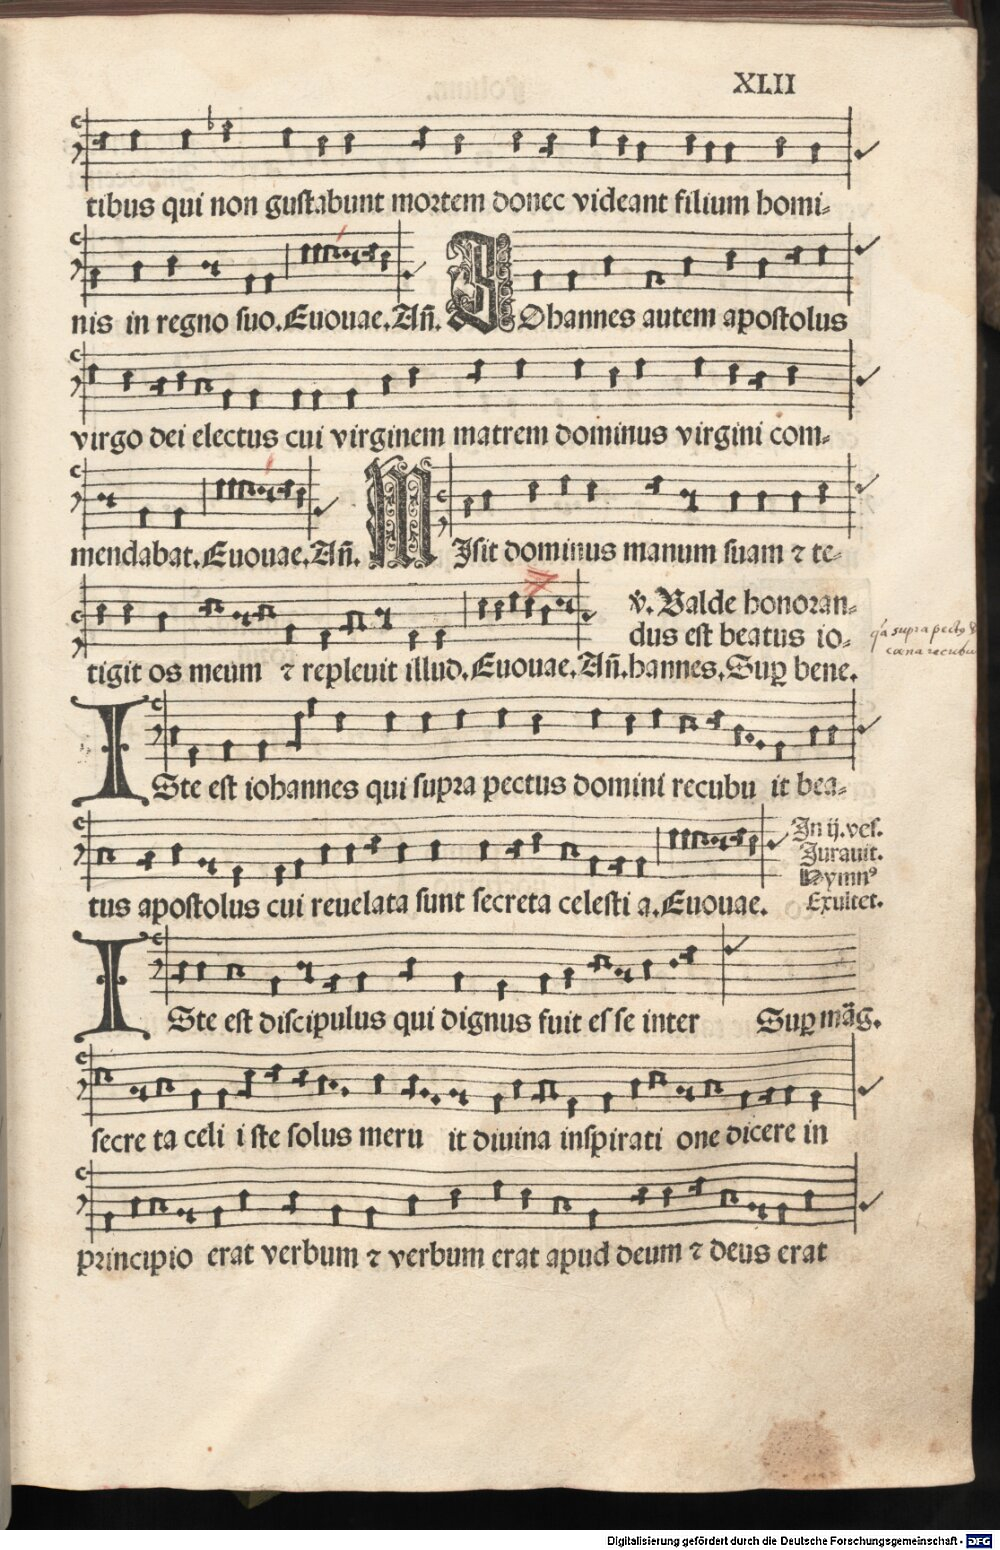 XLII
tibus qui non gustabunt mortem donec videant filium homi-
nis in regno suo. Euouae. Añ. IOhannes autem apostolus
virgo dei electus cui virginem matrem dominus virgini com-
mendabat. Euouae. Añ. MIsit dominus manum suam ⁊ te-
tigit os meum ⁊ repleuit illud. Euouae. Añ.
℣. Valde honoran-
dus est beatus io-
hannes. Sup bene.
qa supra pectus
cœna recubu
ISte est iohannes qui supra pectus domini recubu it bea-
tus apostolus cui reuelata sunt secreta celesti a. Euouae.
In ij. ves.
Jurauit.
Hymnꝰ
Exultet.
ISte est discipulus qui dignus fuit es se inter Sup mãg.
secre ta celi i ste solus meru it diuina inspirati one dicere in
principio erat verbum ⁊ verbum erat apud deum ⁊ deus erat
Digitalisierung gefördert durch die Deutsche Forschungsgemeinschaft - DFG